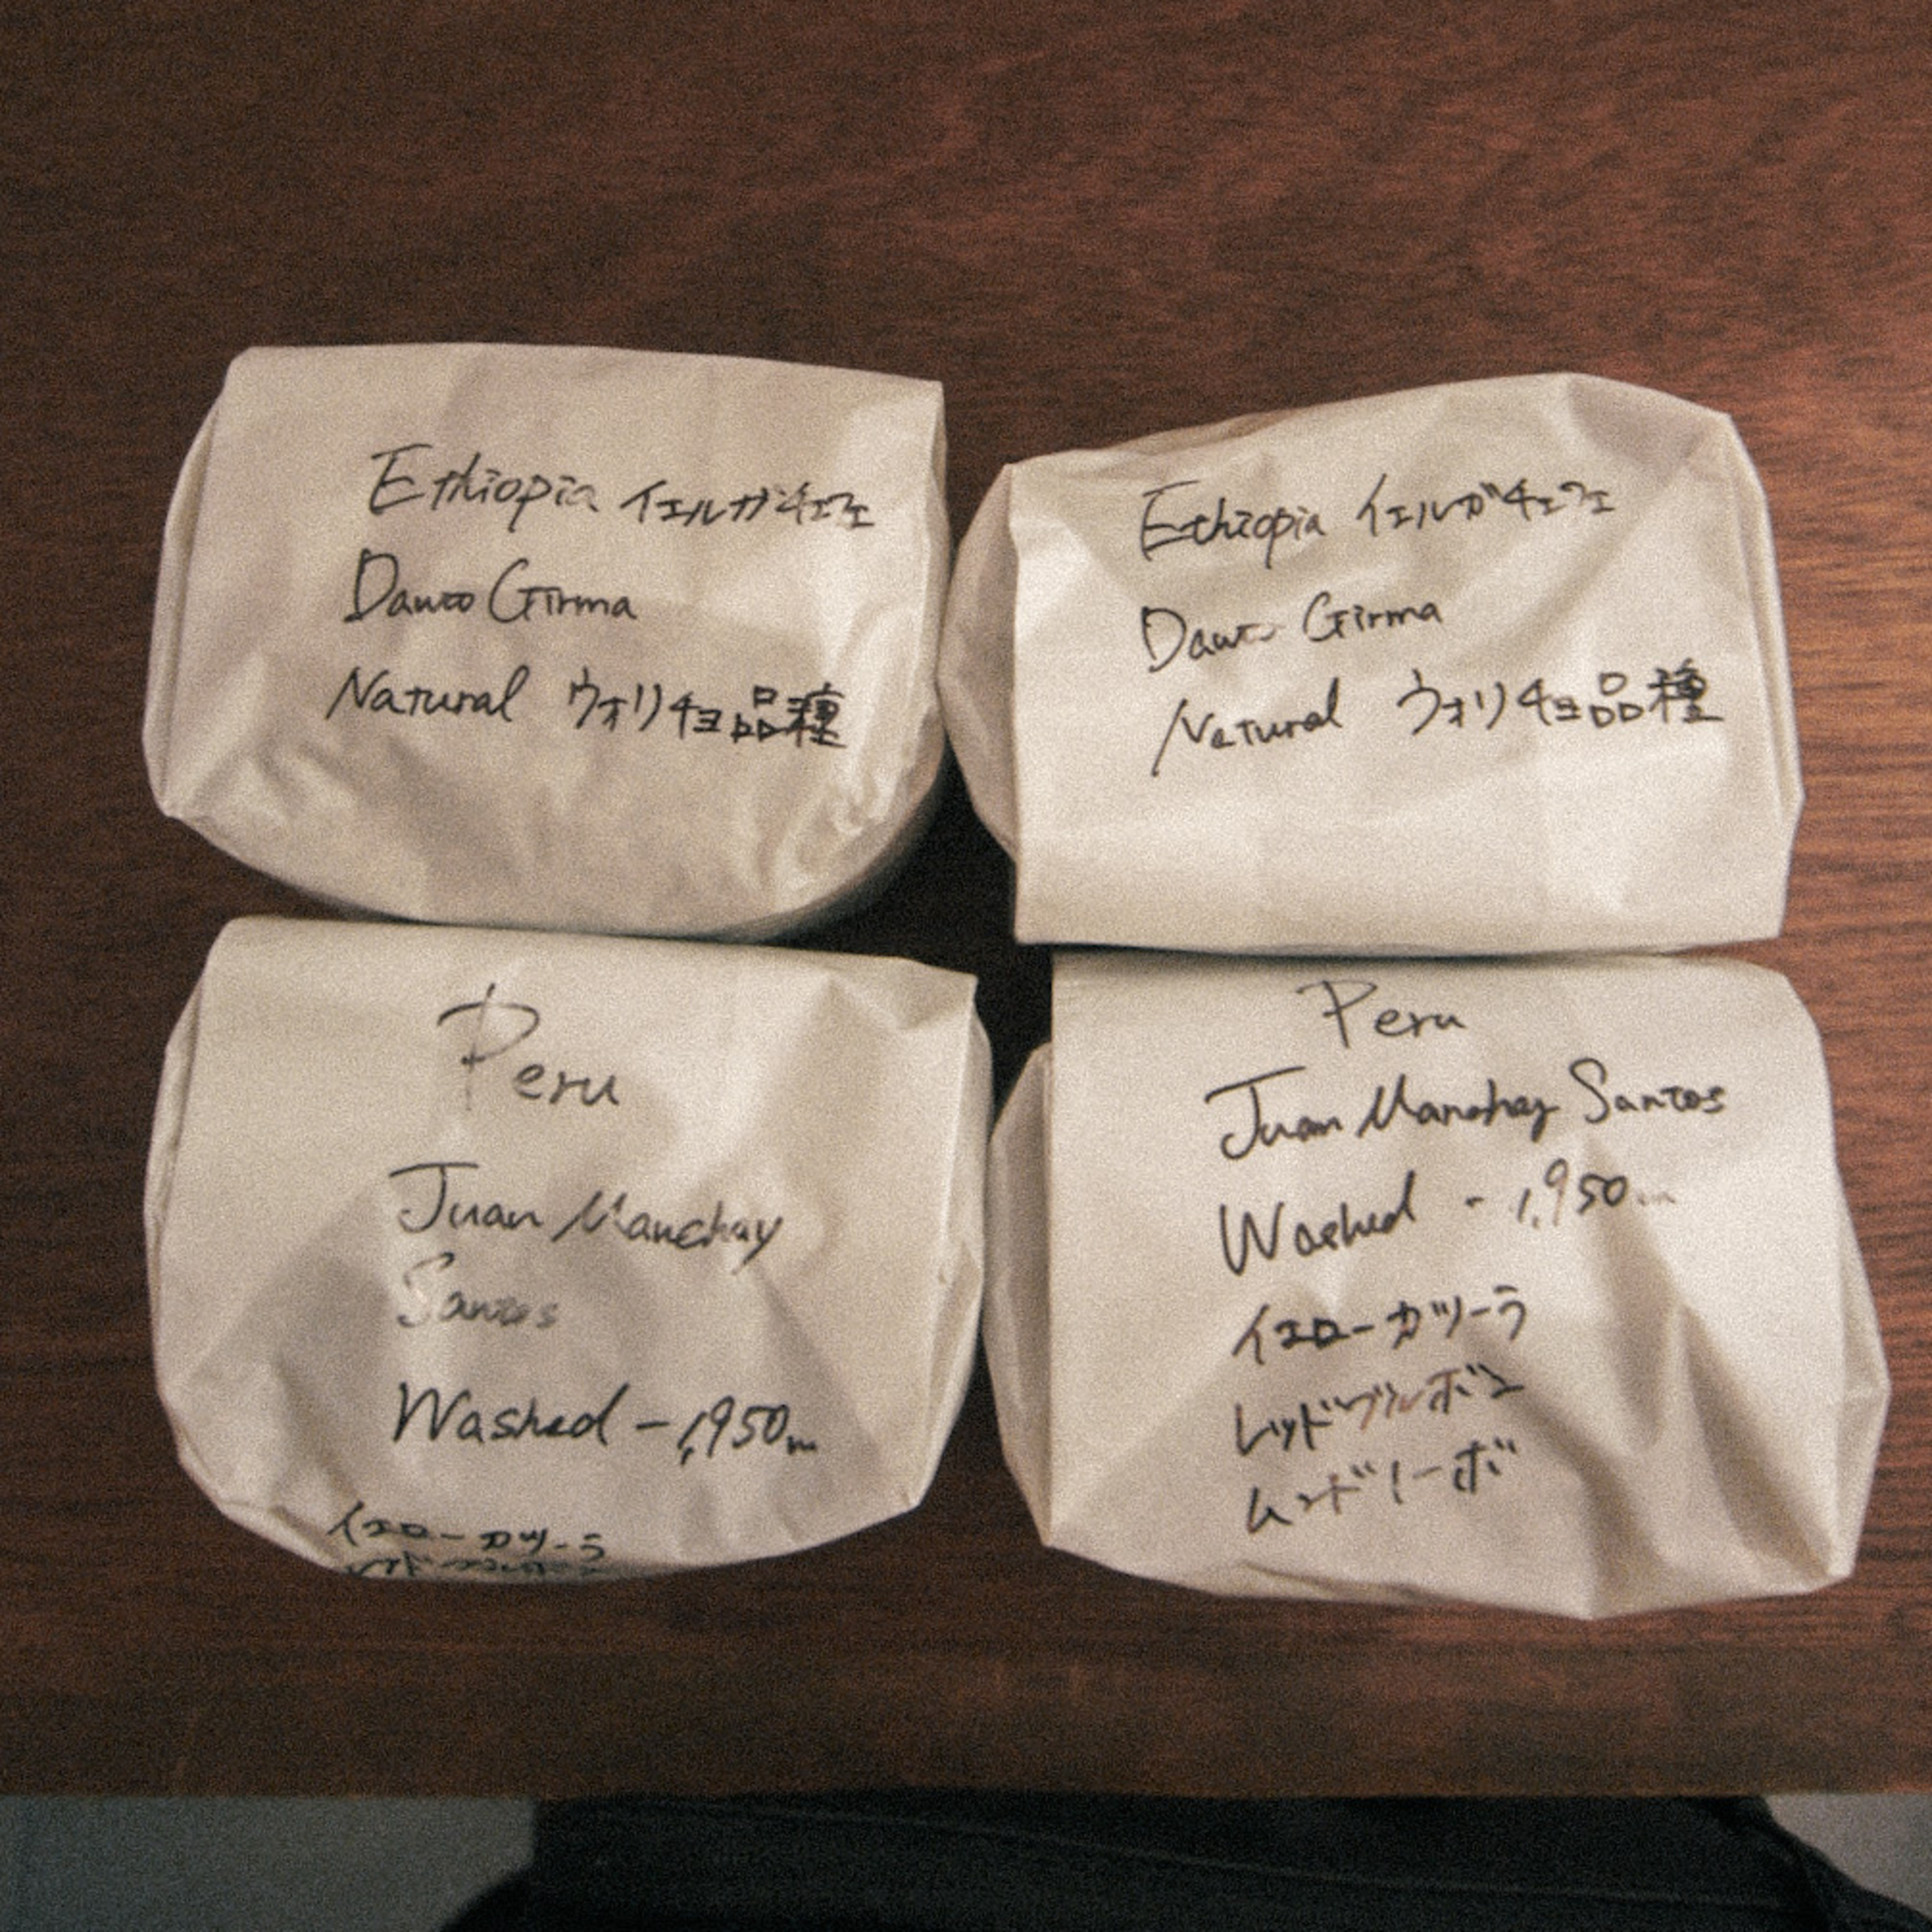 Ethiopia イェルガチェフェ
Dawit Girma
Natural ウォリチョ品種
Ethiopia イェルガチェフェ
Dawit Girma
Natural ウォリチョ品種
Peru
Juan Manchay
Santos
Washed - 1,950m
イエローカツーラ
Peru
Juan Manchay Santos
Washed - 1,950m
イエローカツーラ
レッドブルボン
ムンドノーボ